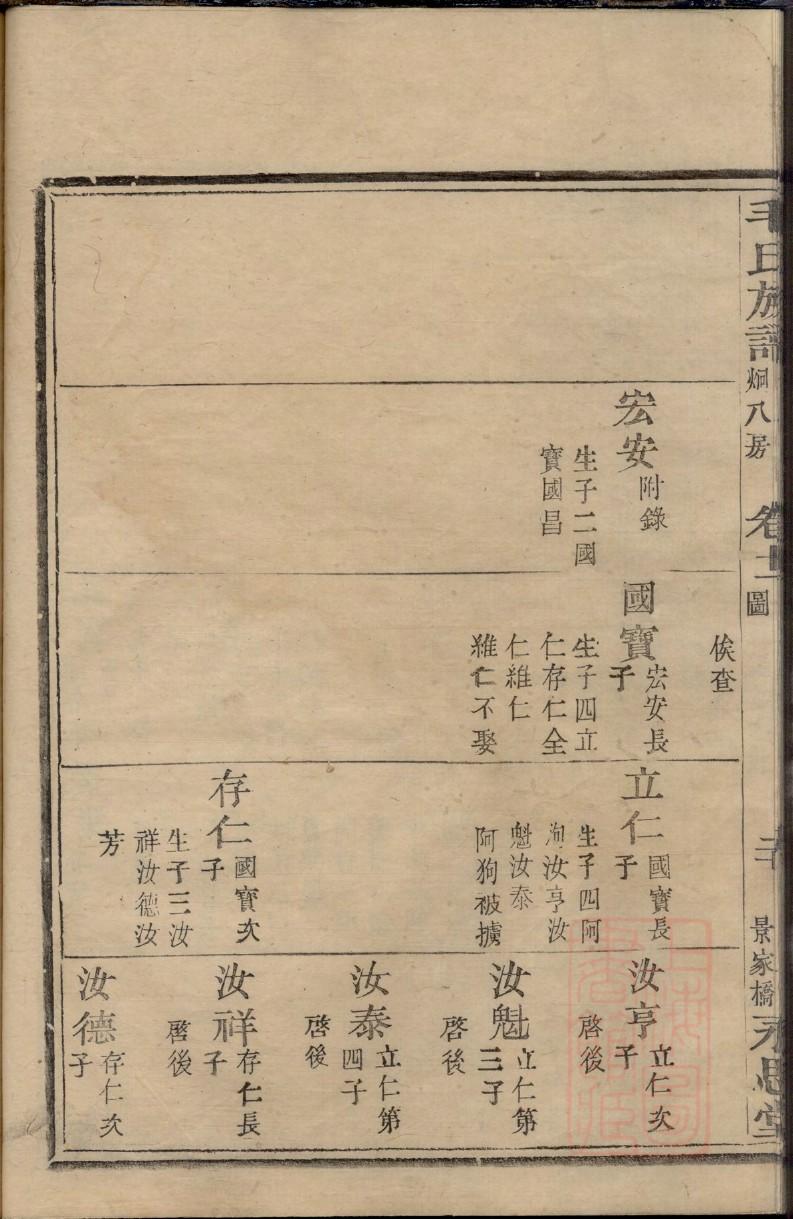 毛氏族譜 炯八房 卷十二 圖 二十 景家橋 永思堂
俟查
宏安 附錄
生子二國
寶國昌
國寶 宏安長
子
生子四立
仁存仁全
仁維仁
維仁不娶
立仁 國寶長
子
生子四阿
狗汝亨汝
魁汝泰
阿狗被擄
存仁 國寶次
子
生子三汝
祥汝德汝
芳
汝亨 立仁次
子
啓後
汝魁 立仁第
三子
啓後
汝泰 立仁第
四子
啓後
汝祥 存仁長
子
啓後
汝德 存仁次
子